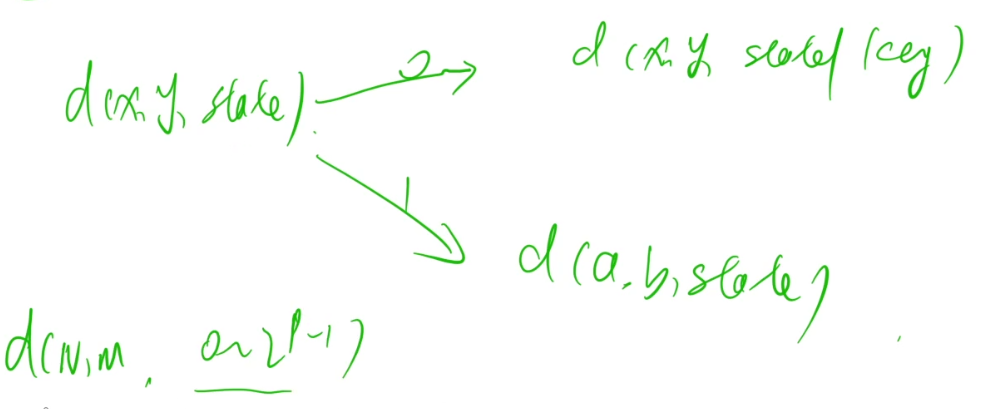 d(x,y,state) 0 d(x,y,state|key)
1
d(a,b,state)
d(N,M, 0~2^P-1)